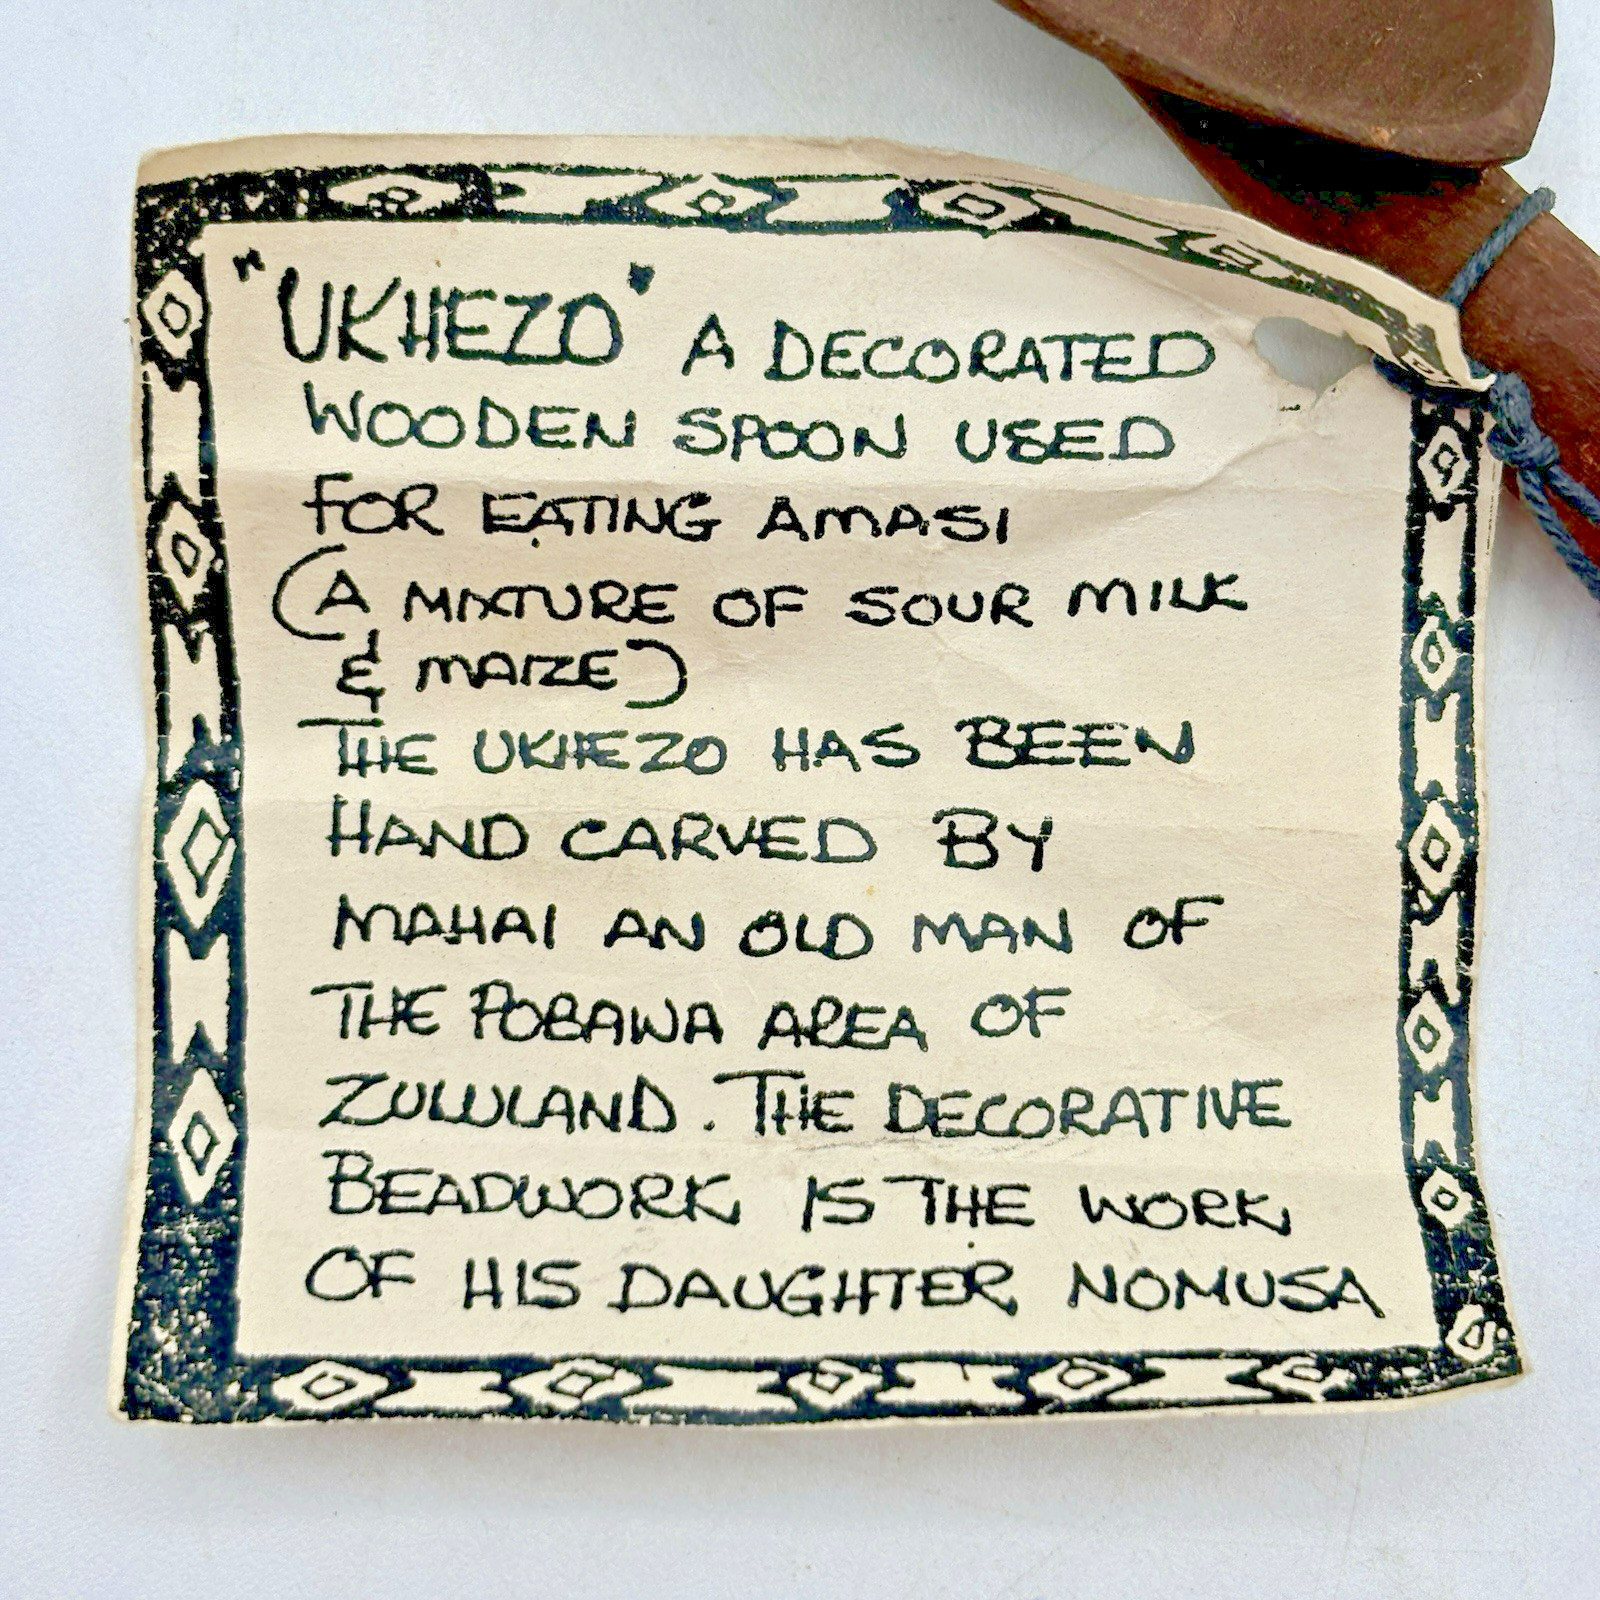 "UKHEZO" A DECORATED
WOODEN SPOON USED
FOR EATING AMASI
(A MIXTURE OF SOUR MILK
& MAIZE)
THE UKHEZO HAS BEEN
HAND CARVED BY
MAHAI AN OLD MAN OF
THE POBAWA AREA OF
ZULULAND. THE DECORATIVE
BEADWORK IS THE WORK
OF HIS DAUGHTER NOMUSA